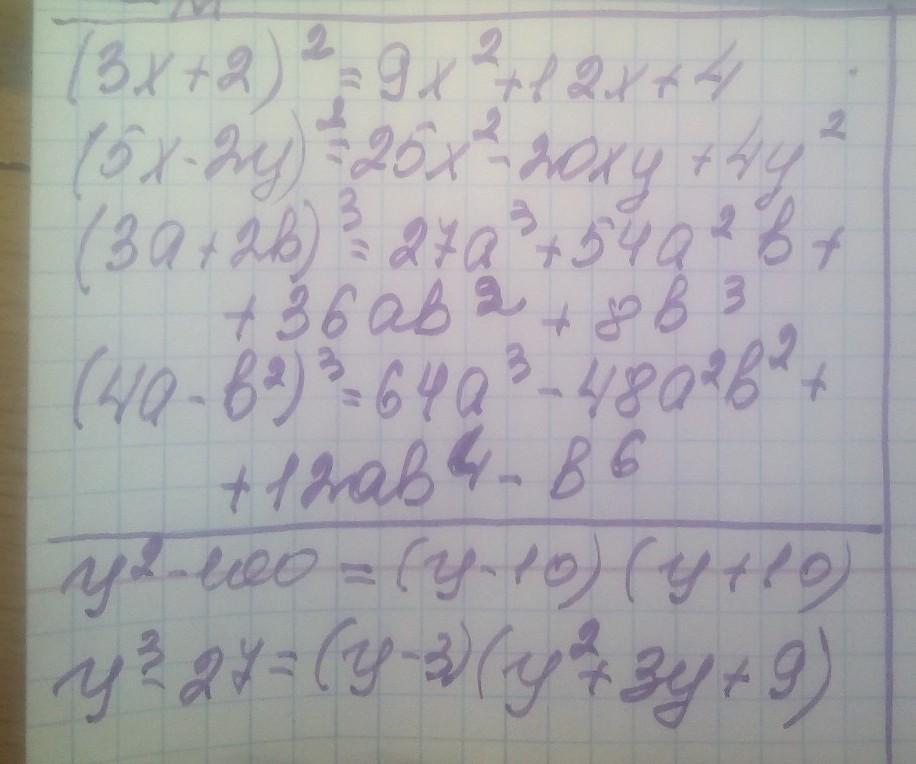 (3x+2)²=9x²+12x+4
(5x-2y)²=25x²-20xy+4y²
(3a+2b)³=27a³+54a²b+
+36ab²+8b³
(4a-b²)³=64a³-48a²b²+
+12ab⁴-b⁶
y²-100=(y-10)(y+10)
y³-27=(y-3)(y²+3y+9)